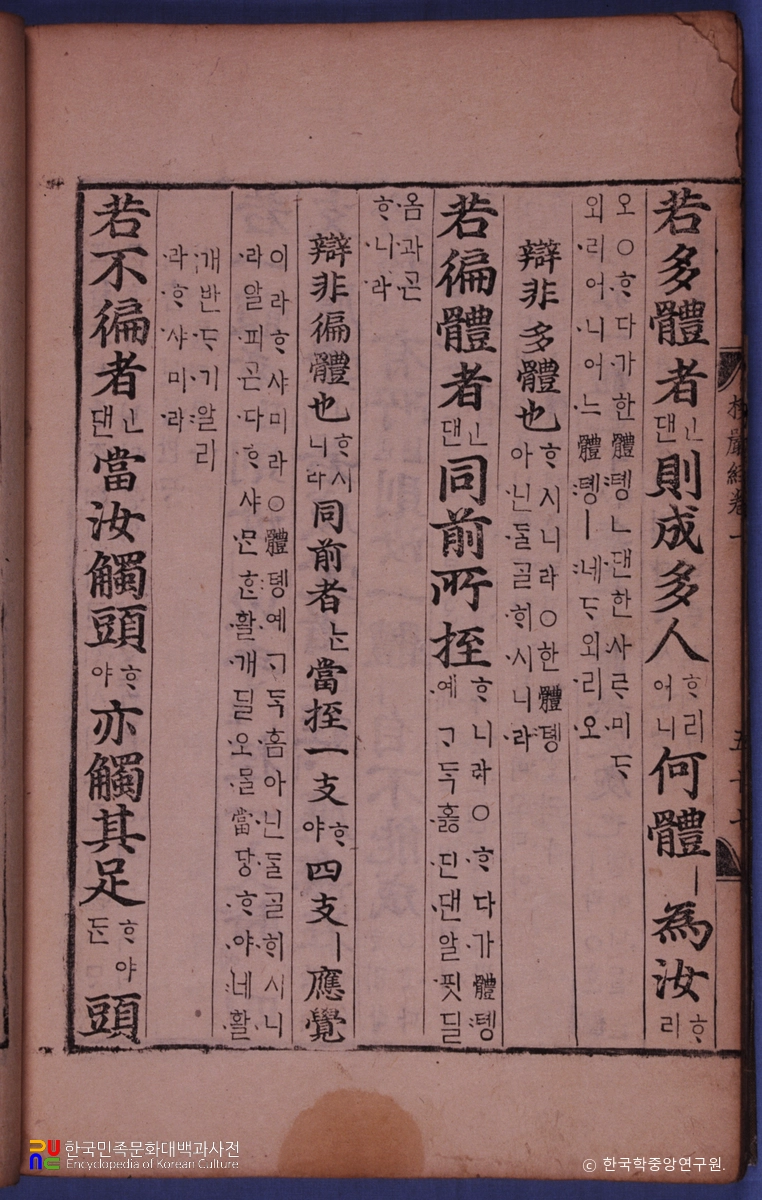 若多體者ㅣㄴ댄則成多人ᄒᆞ리어니何體ㅣ為汝ᄒᆞ리
오○ᄒᆞ다가한體톙ㄴ댄한사ᄅᆞ미ᄃᆞ
외리어니어느體톙ㅣ네ᄃᆞ외리오
辯非多體也ᄒᆞ시니라○한體톙아닌ᄃᆞᆯᄀᆞᆯᄒᆡ시니라
若徧體者ㅣㄴ댄同前所挃ᄒᆞ니라○ᄒᆞ다가體톙예ᄀᆞᄃᆞᆨᄒᆞᇙ딘댄알ᄑᆡᆺ딜
옴과ᄀᆞᆮ
ᄒᆞ니라
辯非徧體也ᄒᆞ시니라同前者ᄂᆞᆫ當挃一支ᄒᆞ야四支ㅣ應覺
이라ᄒᆞ샤미라○體톙예ᄀᆞᄃᆞᆨ홈아닌ᄃᆞᆯᄀᆞᆯᄒᆡ시니
라알ᄑᆡᄀᆞᆮ다ᄒᆞ샤ᄆᆞᆫᄒᆞᆫ활개딜오ᄆᆞᆯ當당ᄒᆞ야네활
개반ᄃᆞ기알리
라ᄒᆞ샤미라
若不徧者ㅣㄴ댄當汝觸頭ᄒᆞ야亦觸其足ᄒᆞ야ᄃᆞᆫ頭
한국민족문화대백과사전
Encyclopedia of Korean Culture
© 한국학중앙연구원.